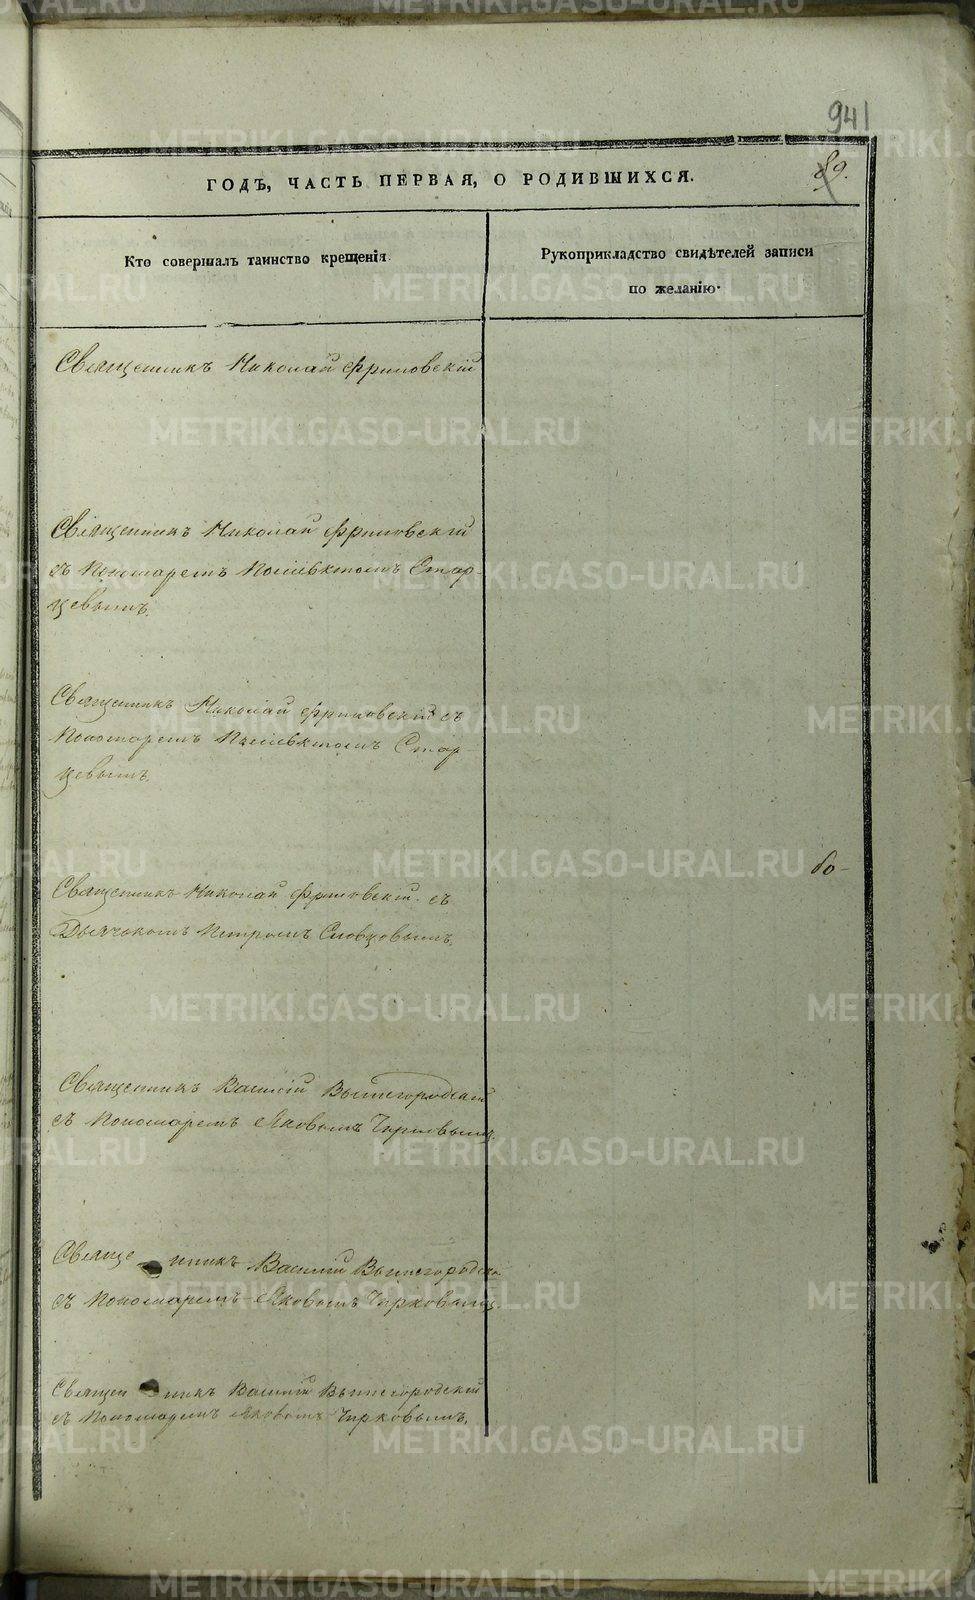 941
89.
ГОДЪ, ЧАСТЬ ПЕРВАЯ, О РОДИВШИХСЯ.
Кто совершалъ таинство крещенія.
Рукоприкладство свидѣтелей записи
по желанію.
Священникъ Николай Фриловскій
Священникъ Николай Фриловскій
съ Пономаремъ Полиевктомъ Стар-
цевымъ.
Священникъ Николай Фриловскій съ
Пономаремъ Полиевктомъ Стар-
цевымъ.
Священникъ Николай Фриловскій съ
Дьячкомъ Петромъ Словцовымъ.
Священникъ Василій Вышегородскій
съ Пономаремъ Яковомъ Чирковымъ.
Священникъ Василій Вышегородскій
съ Пономаремъ Яковомъ Чирковымъ.
Священникъ Василій Вышегородскій
съ Пономаремъ Яковомъ Чирковымъ.
METRIKI.GASO-URAL.RU